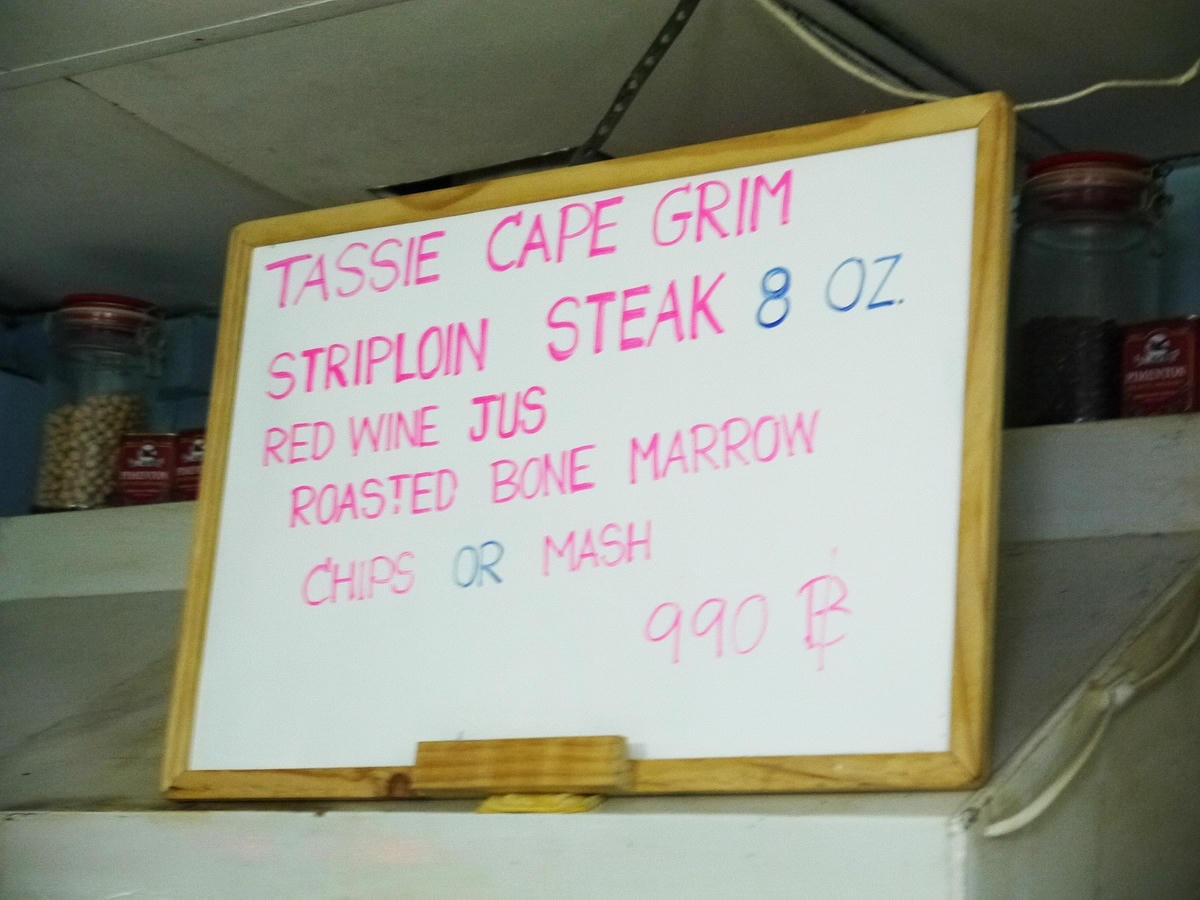 TASSIE CAPE GRIM
STRIPLOIN STEAK 8 OZ.
RED WINE JUS
ROASTED BONE MARROW
CHIPS OR MASH
990 ฿
PIMENTON
PIMENTON